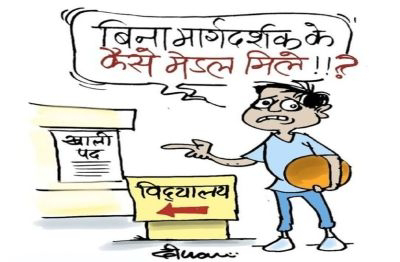 बिना मार्गदर्शक के
कैसे मेडल मिले !!?
खाली
पद
विद्यालय